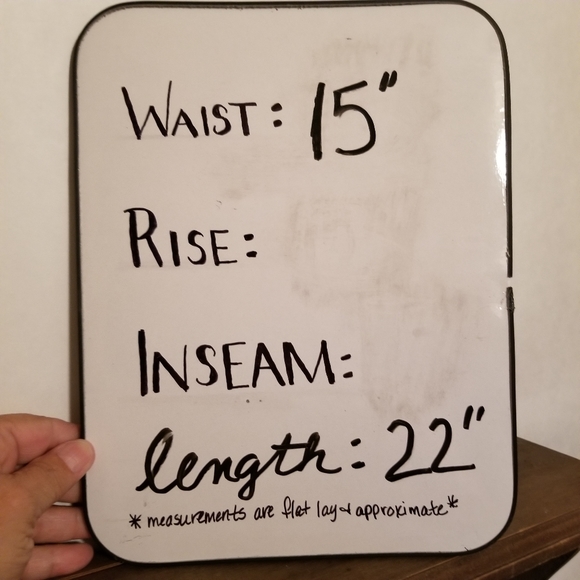 WAIST: 15"
RISE:
INSEAM:
length: 22"
*measurements are flat lay & approximate*